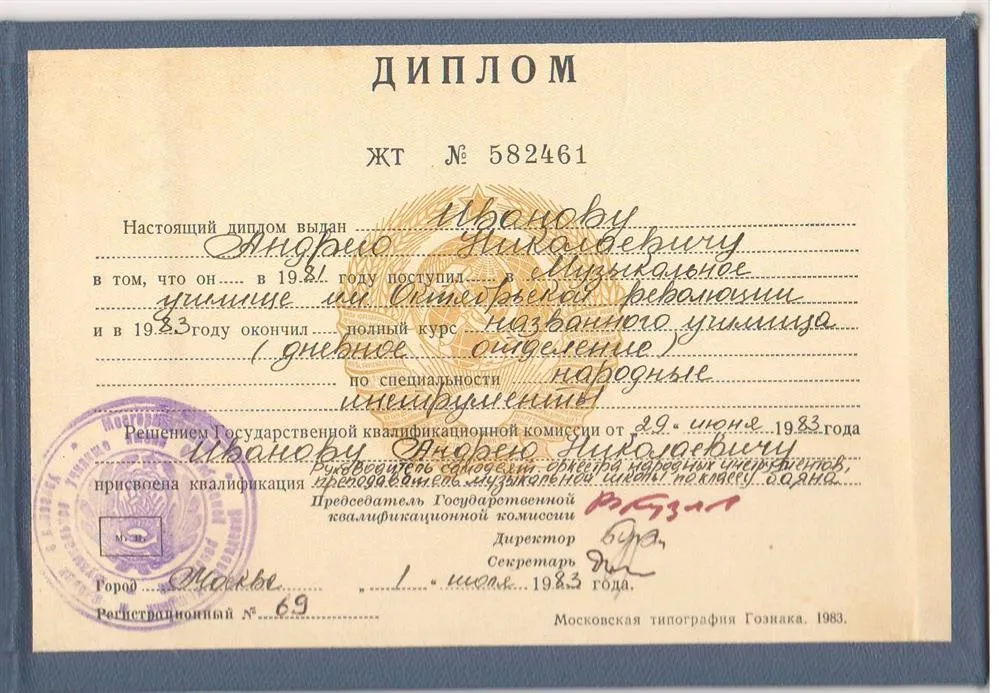 ДИПЛОМ
ЖТ № 582461
Настоящий диплом выдан Иванову
Андрею Николаевичу
в том, что он в 1981 году поступил в Музыкальное
училище им Октябрьской революции
и в 1983 году окончил полный курс названного училища
(дневное отделение)
по специальности народные
инструменты
Решением Государственной квалификационной комиссии от „29" июня 1983 года
Иванову Андрею Николаевичу
Руководитель самодеят оркестра народных инструментов,
присвоена квалификация преподаватель музыкальной школы по классу баяна
Председатель Государственной
квалификационной комиссии
Директор
Секретарь
м. п.
Город Москва „1" июля 1983 года.
Регистрационный № 69
Московская типография Гознака. 1983.